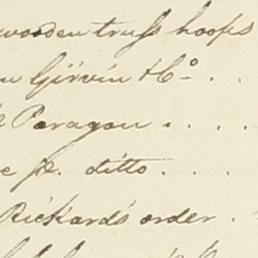 wooden truss hoops
Girvin & Co. . .
Paragon . . . .
pr. ditto . . .
Rickard's order . .